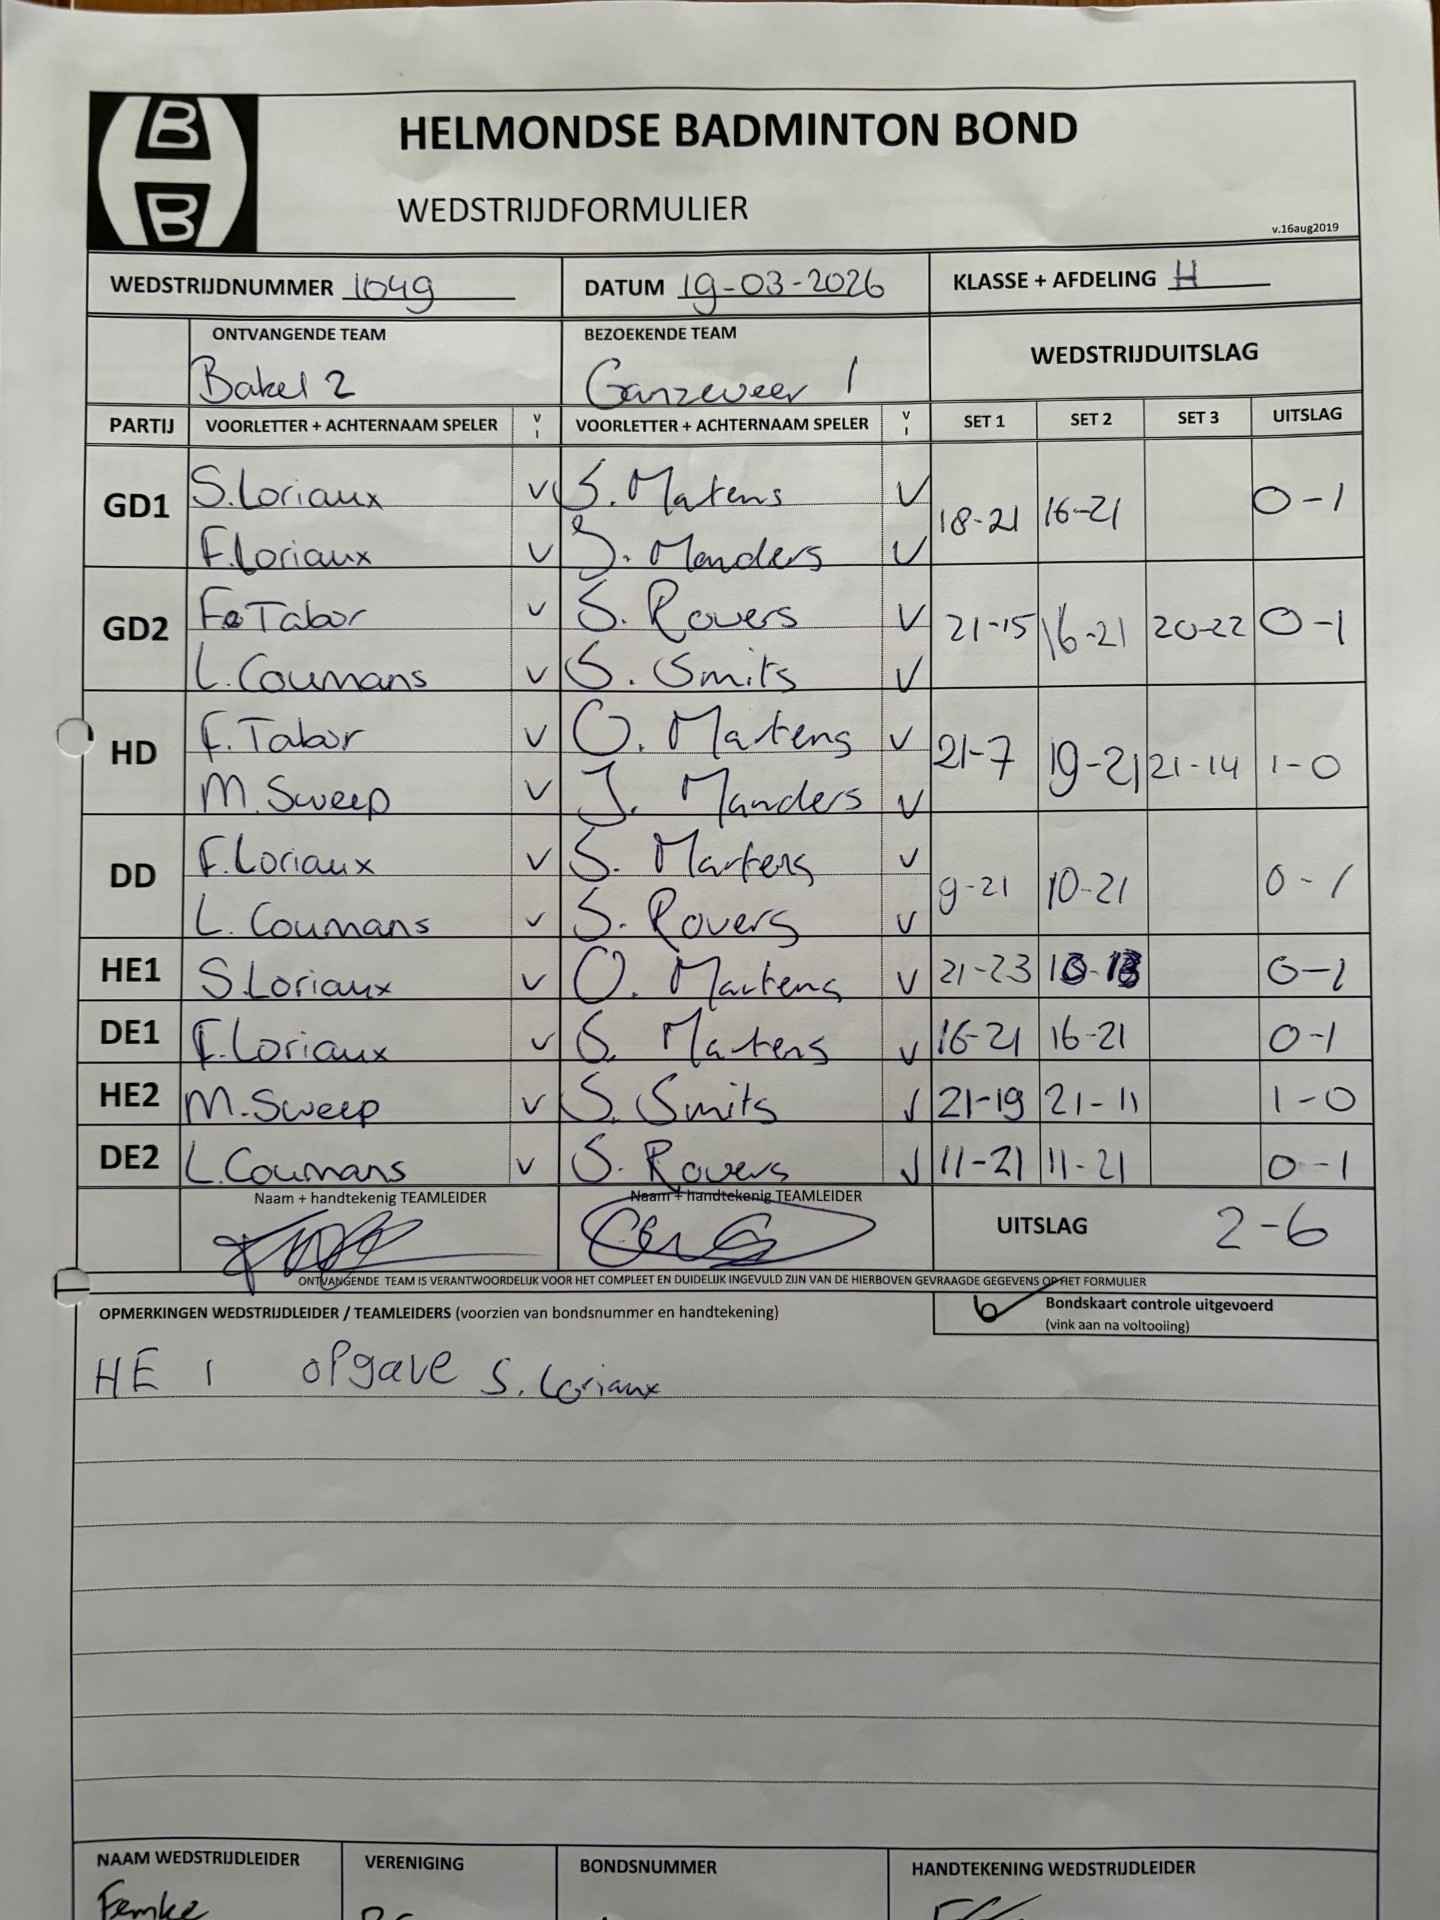 HELMONDSE BADMINTON BOND
WEDSTRIJDFORMULIER
v.16aug2019
WEDSTRIJDNUMMER 1049 DATUM 19-03-2026 KLASSE + AFDELING H
ONTVANGENDE TEAM BEZOEKENDE TEAM WEDSTRIJDUITSLAG
Bakel 2 Ganzeveer 1
PARTIJ VOORLETTER + ACHTERNAAM SPELER V I VOORLETTER + ACHTERNAAM SPELER V I SET 1 SET 2 SET 3 UITSLAG
GD1 S.Loriaux V S. Matens V 18-21 16-21 0-1
F.Loriaux V J. Manders V
GD2 F. Tabor V S. Rovers V 21-15 16-21 20-22 0-1
L. Coumans V S. Smits V
HD F. Tabor V O. Martens V 21-7 19-21 21-14 1-0
M. Sweep V J. Manders V
DD F. Loriaux V S. Martens V 9-21 10-21 0-1
L. Coumans V S. Rovers V
HE1 S.Loriaux V O. Martens V 21-23 0-1
DE1 F. Loriaux V S. Martens V 16-21 16-21 0-1
HE2 M. Sweep V S. Smits V 21-19 21-11 1-0
DE2 L. Coumans V S. Rovers V 11-21 11-21 0-1
Naam + handtekenig TEAMLEIDER Naam + handtekenig TEAMLEIDER UITSLAG 2-6
ONTVANGENDE TEAM IS VERANTWOORDELIJK VOOR HET COMPLEET EN DUIDELIJK INGEVULD ZIJN VAN DE HIERBOVEN GEVRAAGDE GEGEVENS OP HET FORMULIER
OPMERKINGEN WEDSTRIJDLEIDER / TEAMLEIDERS (voorzien van bondsnummer en handtekening) Bondskaart controle uitgevoerd
(vink aan na voltooiing)
HE 1 opgave S. Loriaux
NAAM WEDSTRIJDLEIDER VERENIGING BONDSNUMMER HANDTEKENING WEDSTRIJDLEIDER
Femke